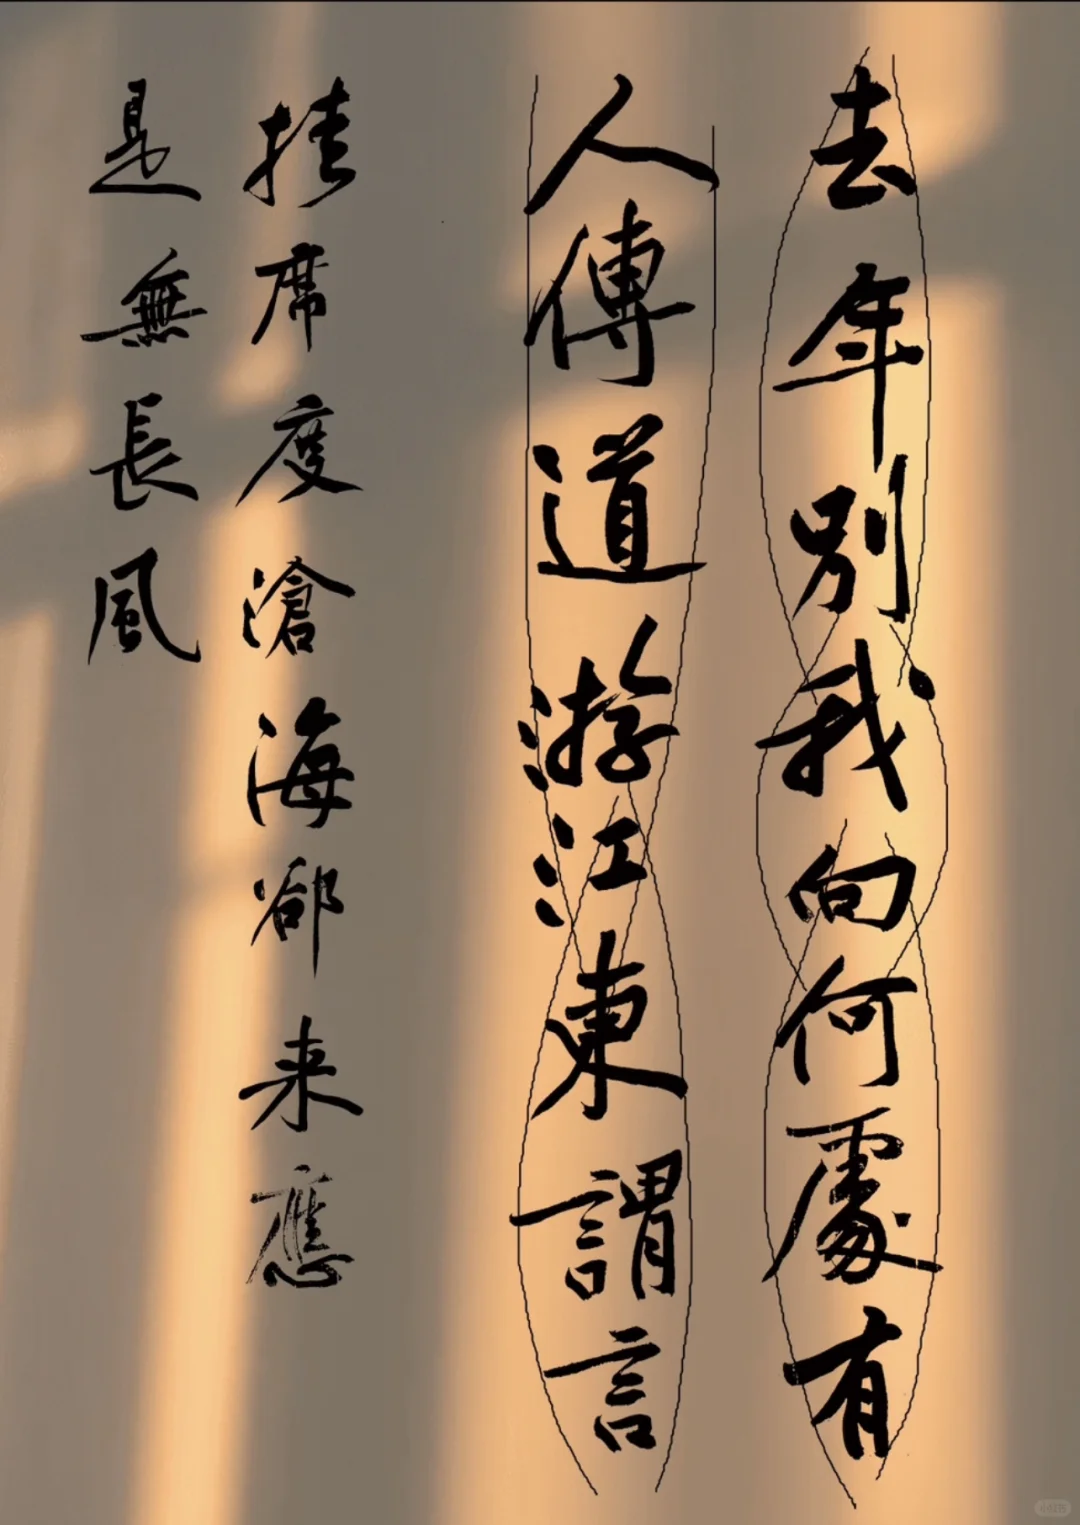 去年別我向何處有
人傳道游江東謂言
挂席度滄海卻来應
是無長風